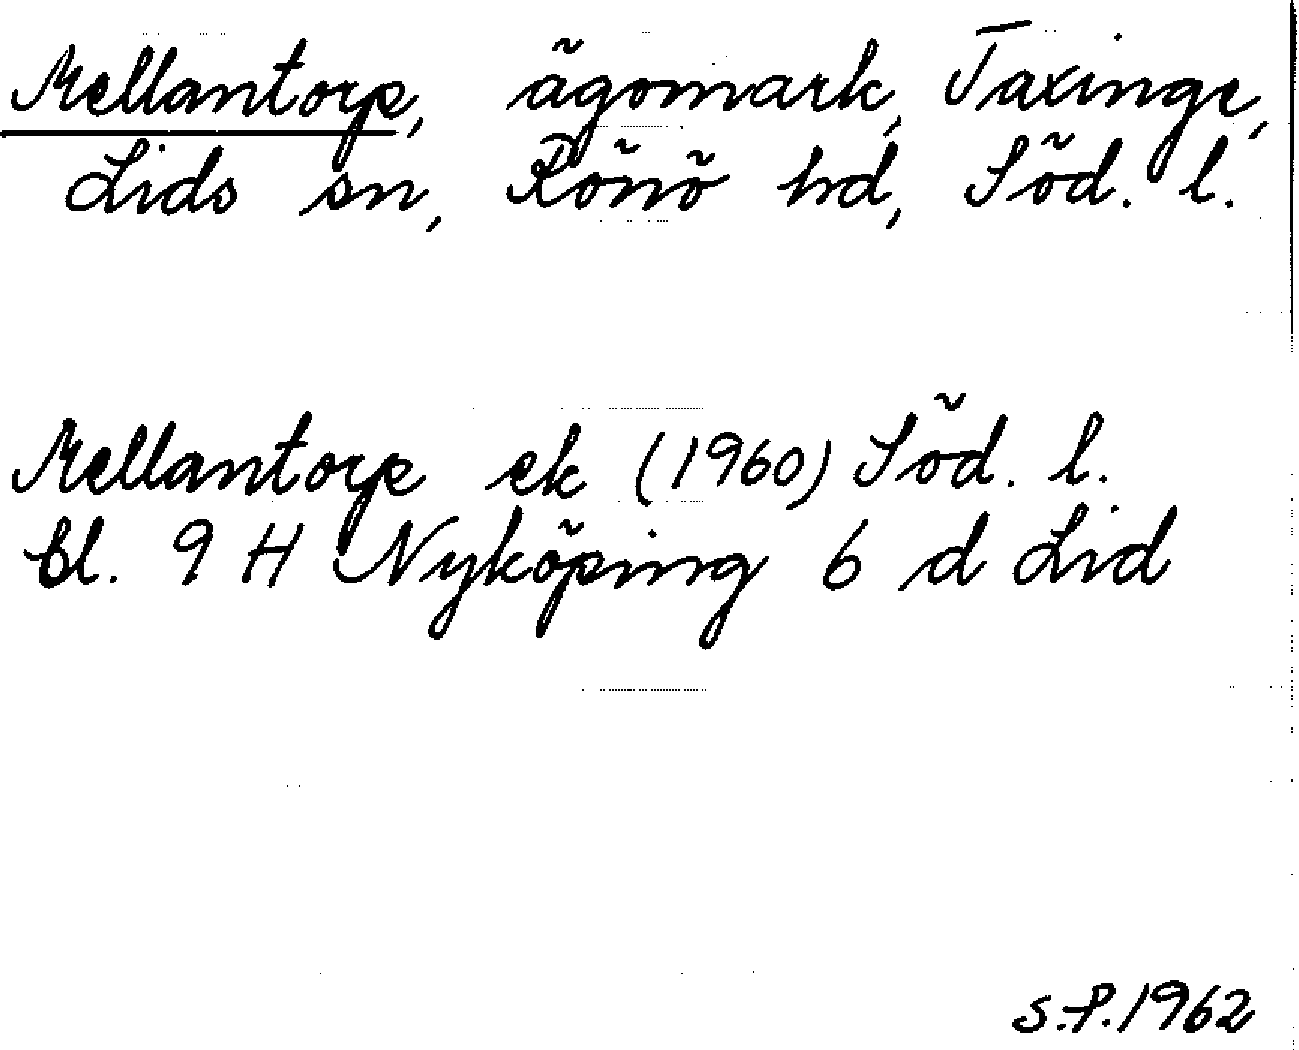 Mellantorp, ägomark, Taxinge,
Lids sn, Rönö hd, Söd. l.
Mellantorp ek (1960) Söd. l.
bl. 9 H Nyköping 6 d Lid
S.P. 1962